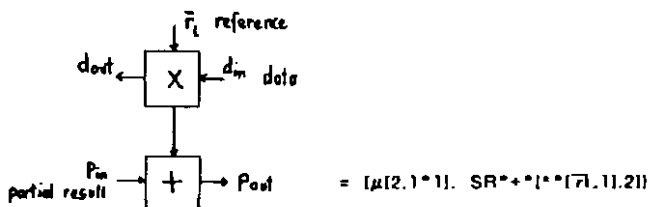 r̄ᵢ reference
dout
X
din data
Pin
partial result
+
Pout
= [μ[2,1*1]. SR*+*[**[r̄ı,1],2]]